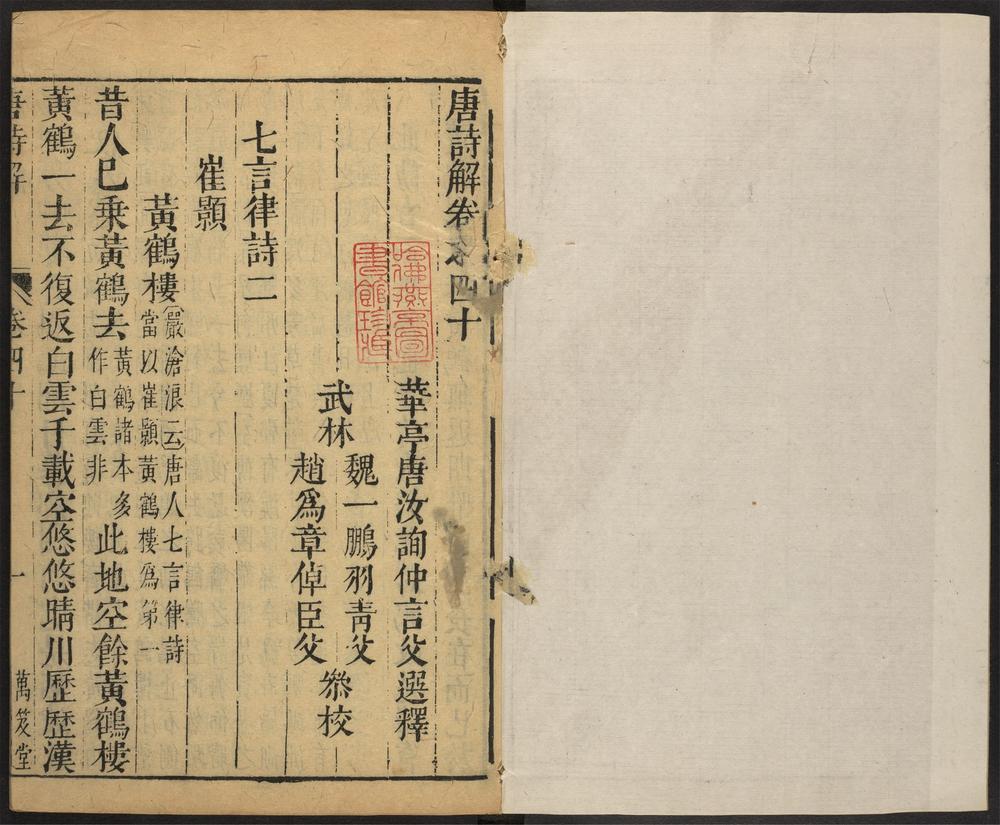 唐詩解卷之四十
華亭唐汝詢仲言父選釋
武林
魏一鵬羽青父
趙爲章倬臣父
叅校
七言律詩二
崔顥
黃鶴樓
嚴滄浪云唐人七言律詩
當以崔顥黃鶴樓爲第一
昔人已乗黃鶴去
黃鶴諸本多
作白雲非
此地空餘黃鶴樓
黃鶴一去不復返白雲千載空悠悠晴川歷歷漢
唐詩解
卷四十
一
萬笈堂
哈佛燕京圖
書館珍藏